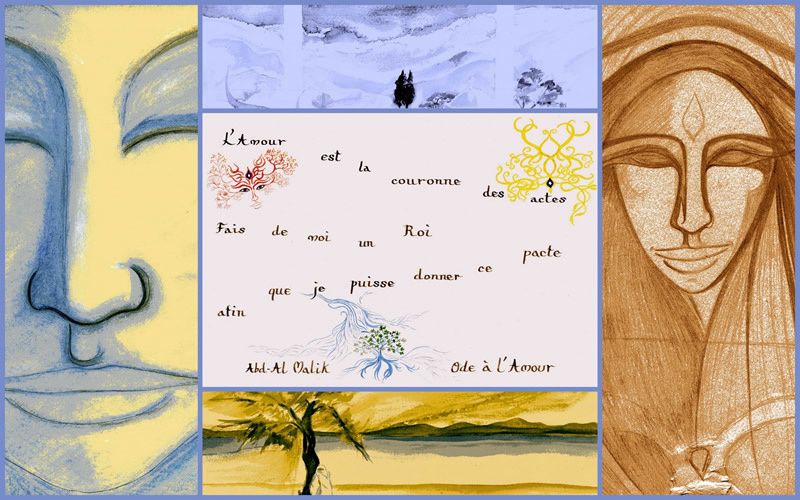 L'Amour est la couronne des actes
Fais de moi un Roi
atin que je puisse donner ce pacte
Abd-Al Malik Ode à L'Amour